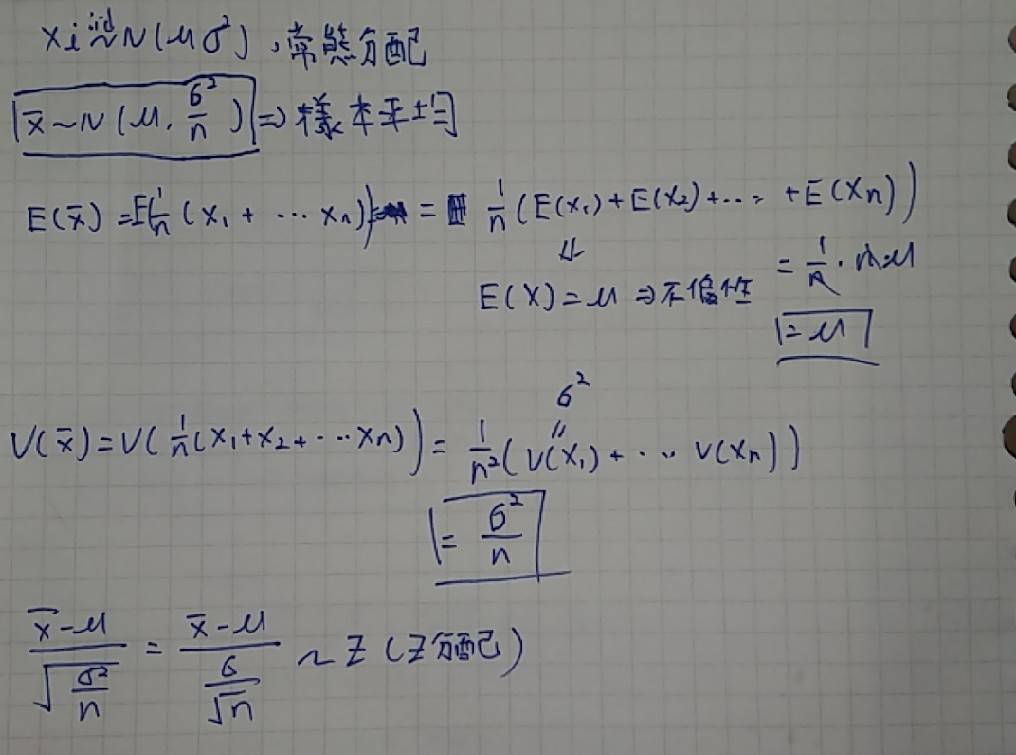 xi iid~ N(μ σ²), 常態分配
x̄ ~ N(μ, σ²/n) ⇒ 樣本平均
E(x̄) = E(1/n (x₁ + ⋯ xₙ)) = 1/n (E(x₁) + E(x₂) + ⋯ + E(xₙ))
⇓
E(X) = μ ⇒ 不偏性 = 1/n · n·μ
= μ
σ²
〃
V(x̄) = V(1/n (x₁ + x₂ + ⋯ xₙ)) = 1/n² (V(x₁) + ⋯ V(xₙ))
= σ²/n
(x̄ - μ)/√(σ²/n) = (x̄ - μ)/(σ/√n) ~ Z (Z分配)